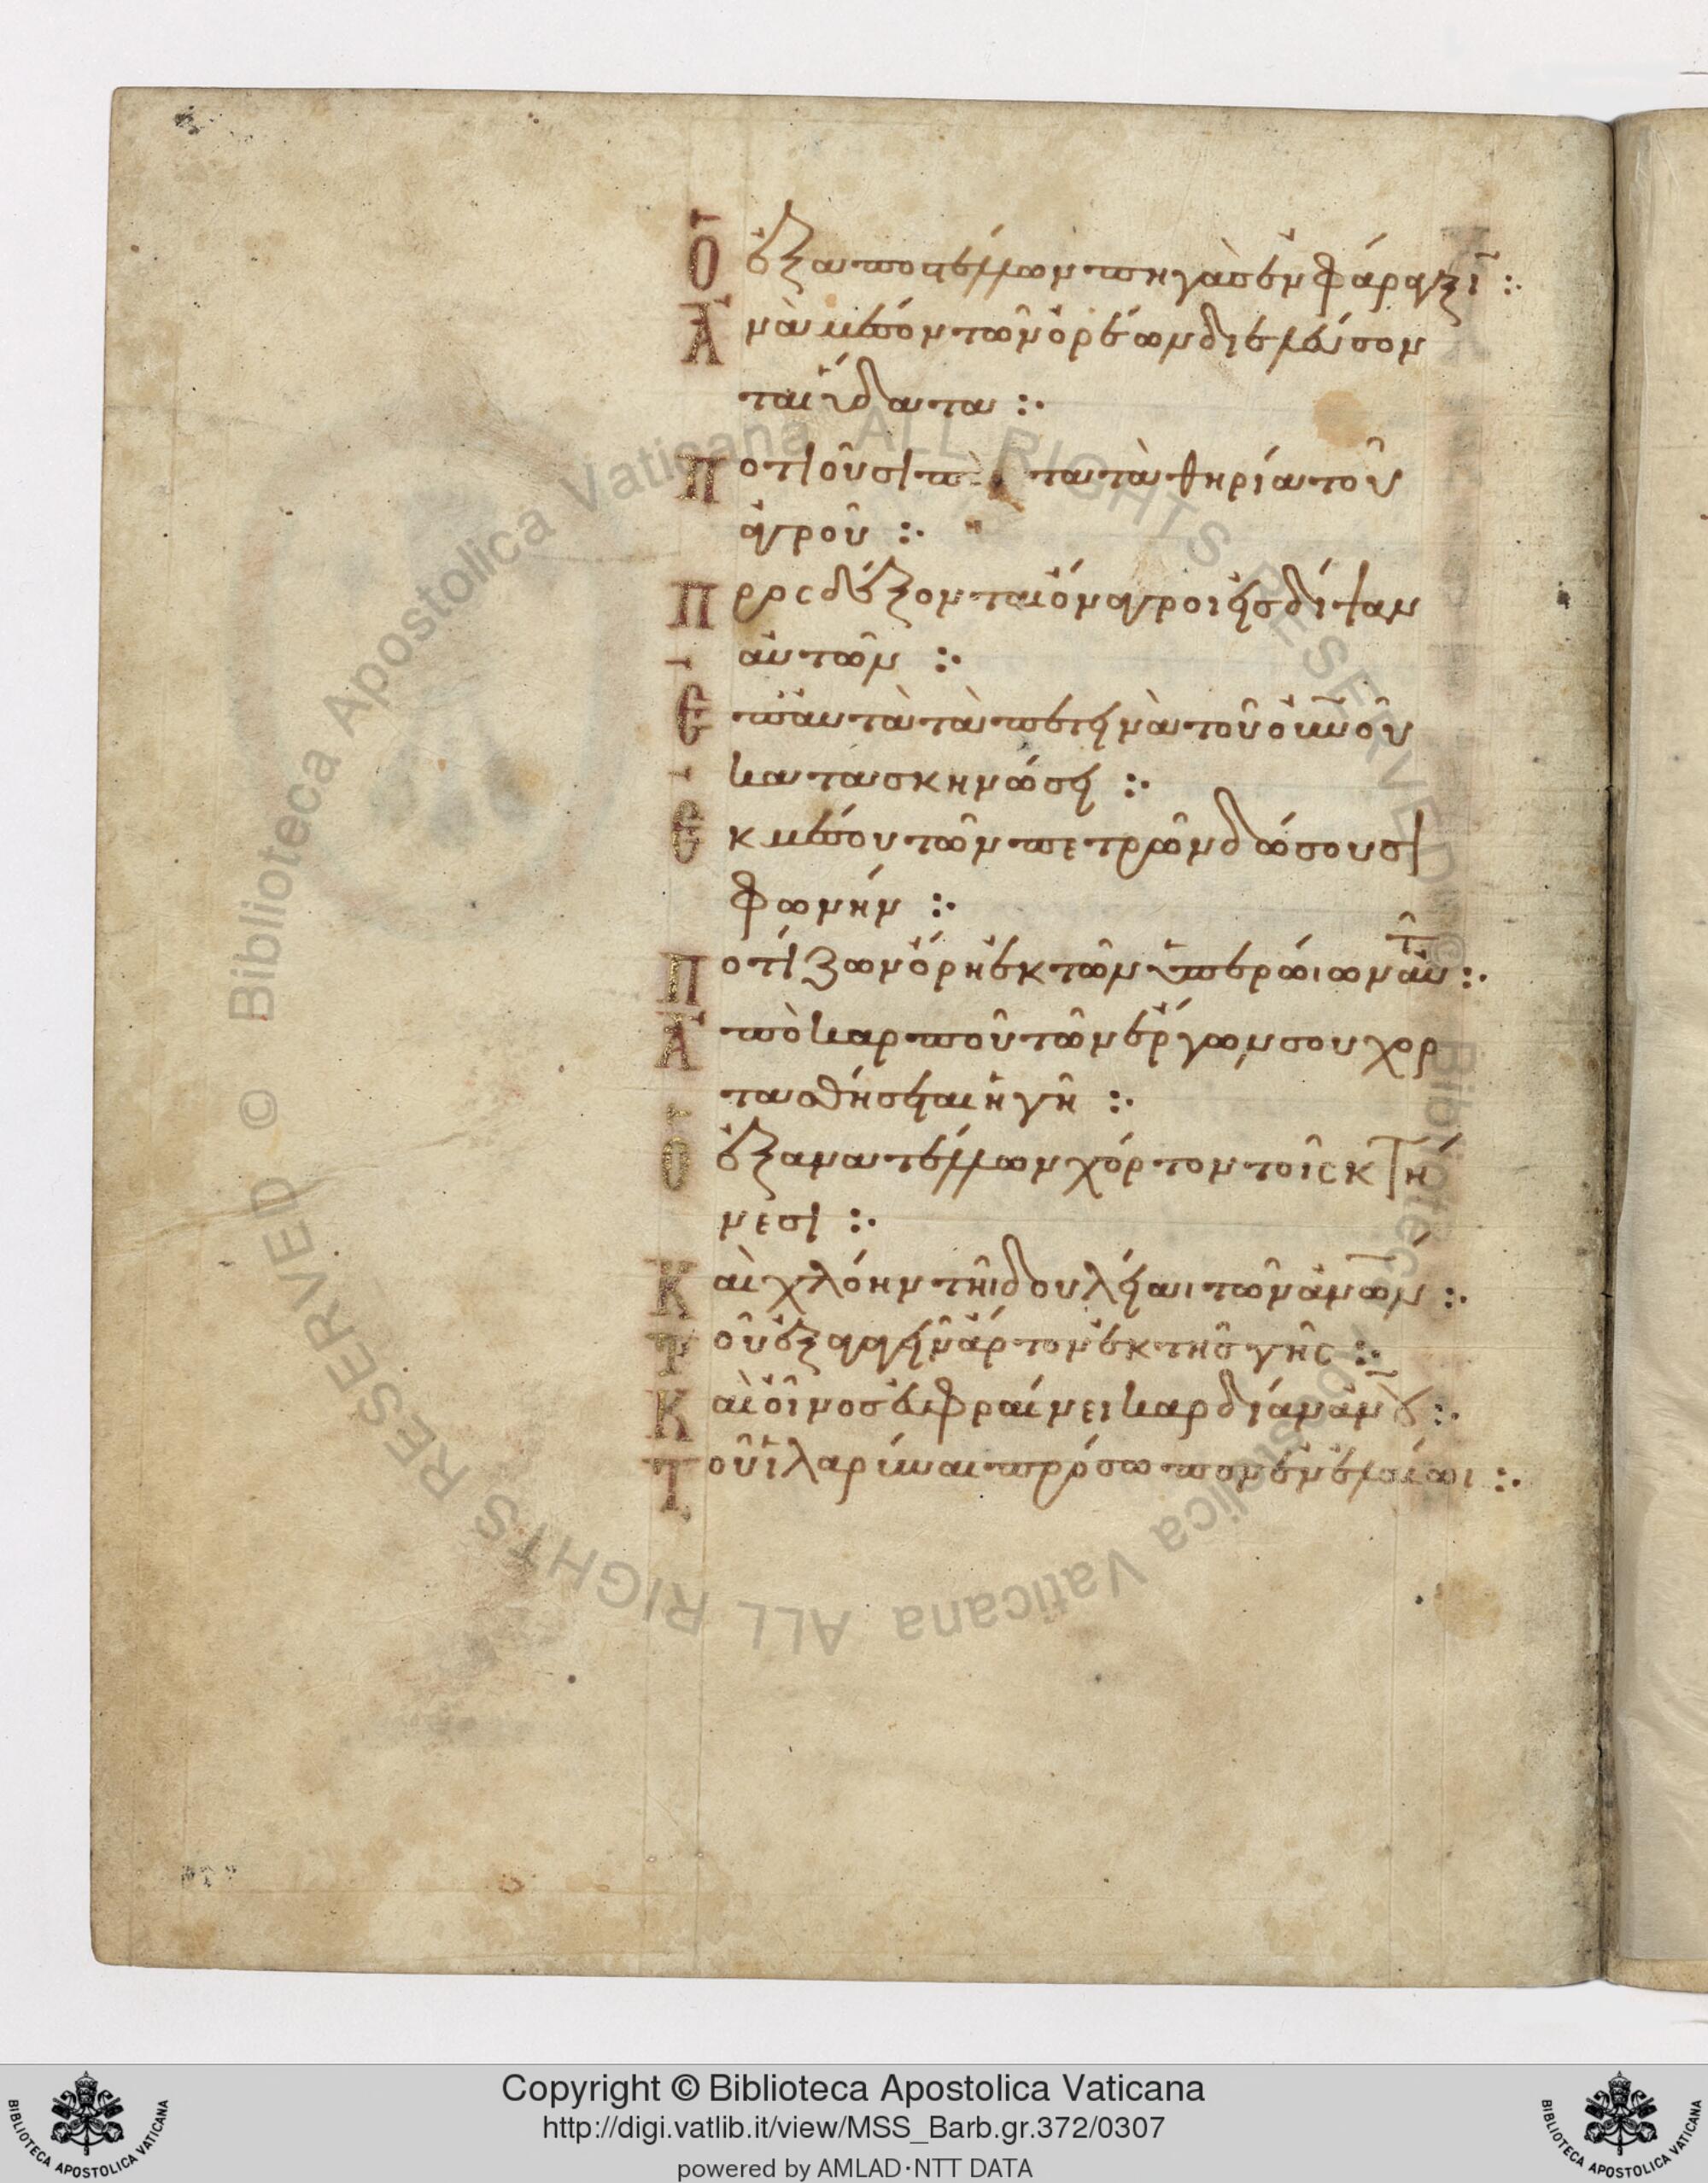 Ὁ ἐξαποστέλλων πηγὰς ἐν φάραγξιν :·
Ἀνὰ μέσον τῶν ὀρέων διελεύσον
ται ὕδατα :·
Ποτιοῦσι τὰ θηρία τοῦ
ἀγροῦ :·
Προσδέξονται ὄναγροι εἰς δίψαν
αὐτῶν :·
Ἐπ αὐτὰ τὰ πετεινὰ τοῦ οὐνοῦ
κατασκηνώσει :·
Ἐκ μέσου τῶν πετρῶν δώσουσι
φωνήν :·
Ποτίζων ὄρη ἐκ τῶν ὑπερώιων αὐτ :·
Ἀπὸ καρποῦ τῶν ἔργων σου χορ
τασθήσεται ἡ γῆ :·
Ὁ ἐξανατέλλων χόρτον τοῖς κτή
νεσι :·
Καὶ χλόην τῆι δουλείαι τῶν ἀνων :·
Τοῦ ἐξαγαγεῖν ἄρτον ἐκ τῆς γῆς :·
Καὶ οἶνος εὐφραίνει καρδίαν ἀνου :·
Τοῦ ἱλαρύναι πρόσωπον ἐν ἐλαίωι :·
© Biblioteca Apostolica Vaticana ALL RIGHTS RESERVED © Biblioteca Apostolica Vaticana ALL RIGHTS RESERVED
Copyright © Biblioteca Apostolica Vaticana
http://digi.vatlib.it/view/MSS_Barb.gr.372/0307
powered by AMLAD·NTT DATA
BIBLIOTECA APOSTOLICA VATICANA
BIBLIOTECA APOSTOLICA VATICANA